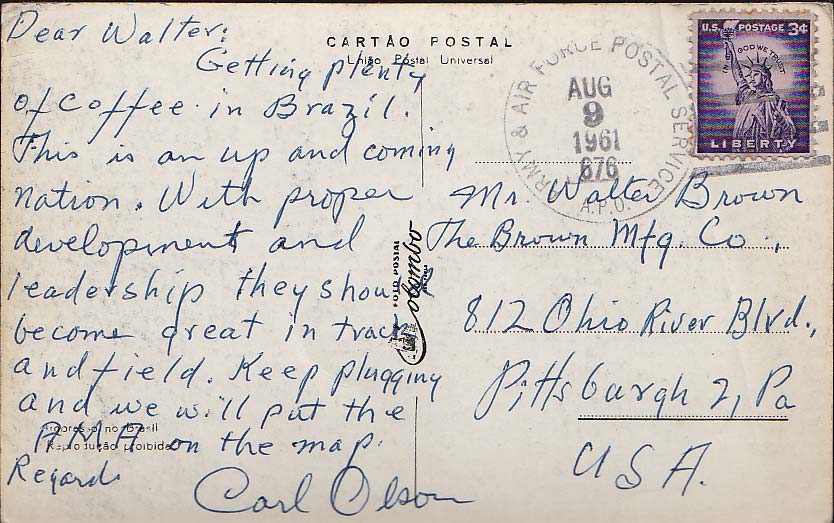 Dear Walter:
Getting plenty
of coffee in Brazil.
This is an up and coming
nation. With proper
development and
leadership they should
become great in track
and field. Keep plugging
and we will put the
HMA on the map.
Regards
Carl Olson
CARTÃO POSTAL
União Postal Universal
FOTO POSTAL
Colombo
Impresso no Brasil
Reprodução proibida
ARMY & AIR FORCE POSTAL SERVICE
AUG
9
1961
676
A.P.O.
U.S. POSTAGE 3¢
IN GOD WE TRUST
LIBERTY
Mr. Walter Brown
The Brown Mfg. Co.,
812 Ohio River Blvd.,
Pittsburgh 2, Pa
USA.